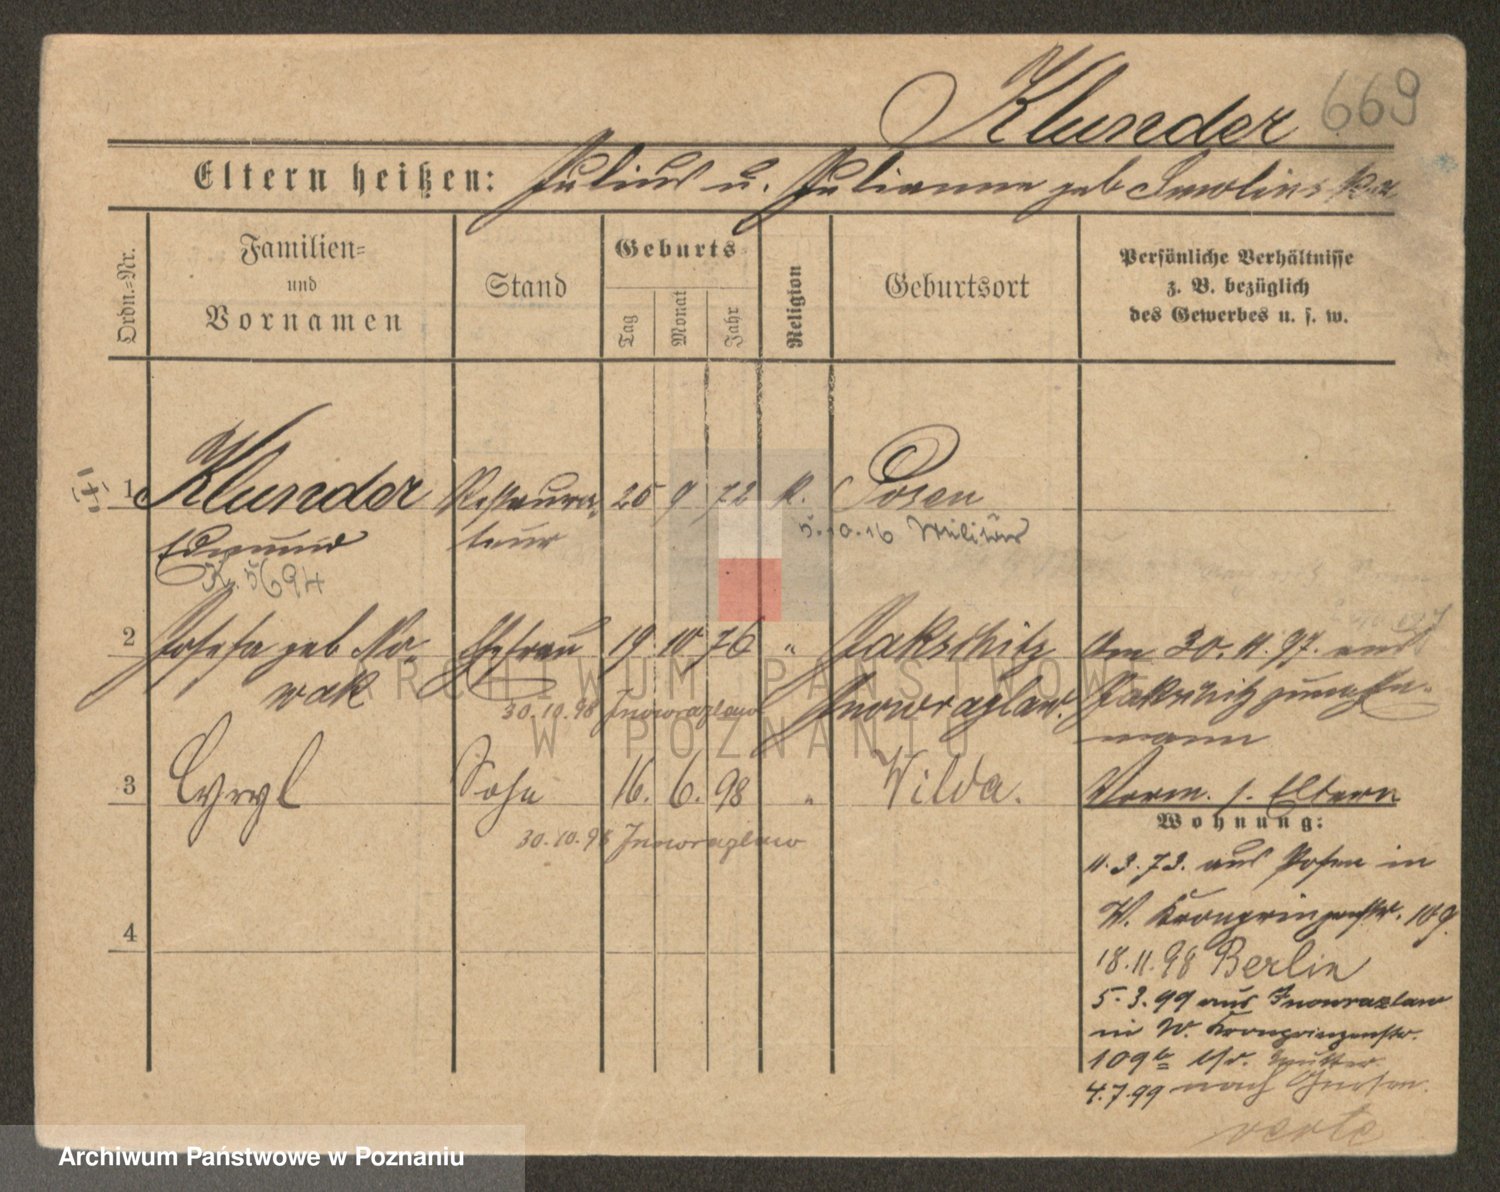 Klunder 669
Eltern heißen: Julius u. Julianna geb Smolinska
Ordn.-Nr.
Familien-
und
Vornamen
Stand
Geburts
Tag
Monat
Jahr
Religion
Geburtsort
Persönliche Verhältnisse
z. B. bezüglich
des Gewerbes u. s. w.
1 Klunder Restaura- 25 9 72 K. Posen
Edmund teur 5.10.16 Militär
K. 5694
2 Josefa geb No- Ehefrau 19. 10 76 " Jakschitz Am 30. 11. 97. aus
wak Inowrazlaw. Jakschitz
30.10.98 Inowrazlaw
3 Cyryl Sohn 16. 6. 98 " Wilda. Vorm. s. Eltern
30.10.98 Inowrazlaw
Wohnung:
11.3.73. aus Posen in
W. Kronprinzenstr. 109.
4
18.11.98 Berlin
5.3.99 aus Inowrazlaw
in W. Kronprinzenstr.
109b bei Mutter
4.7.99 nach Gnesen.
verte
ARCHIWUM PAŃSTWOWE
W POZNANIU
Archiwum Państwowe w Poznaniu